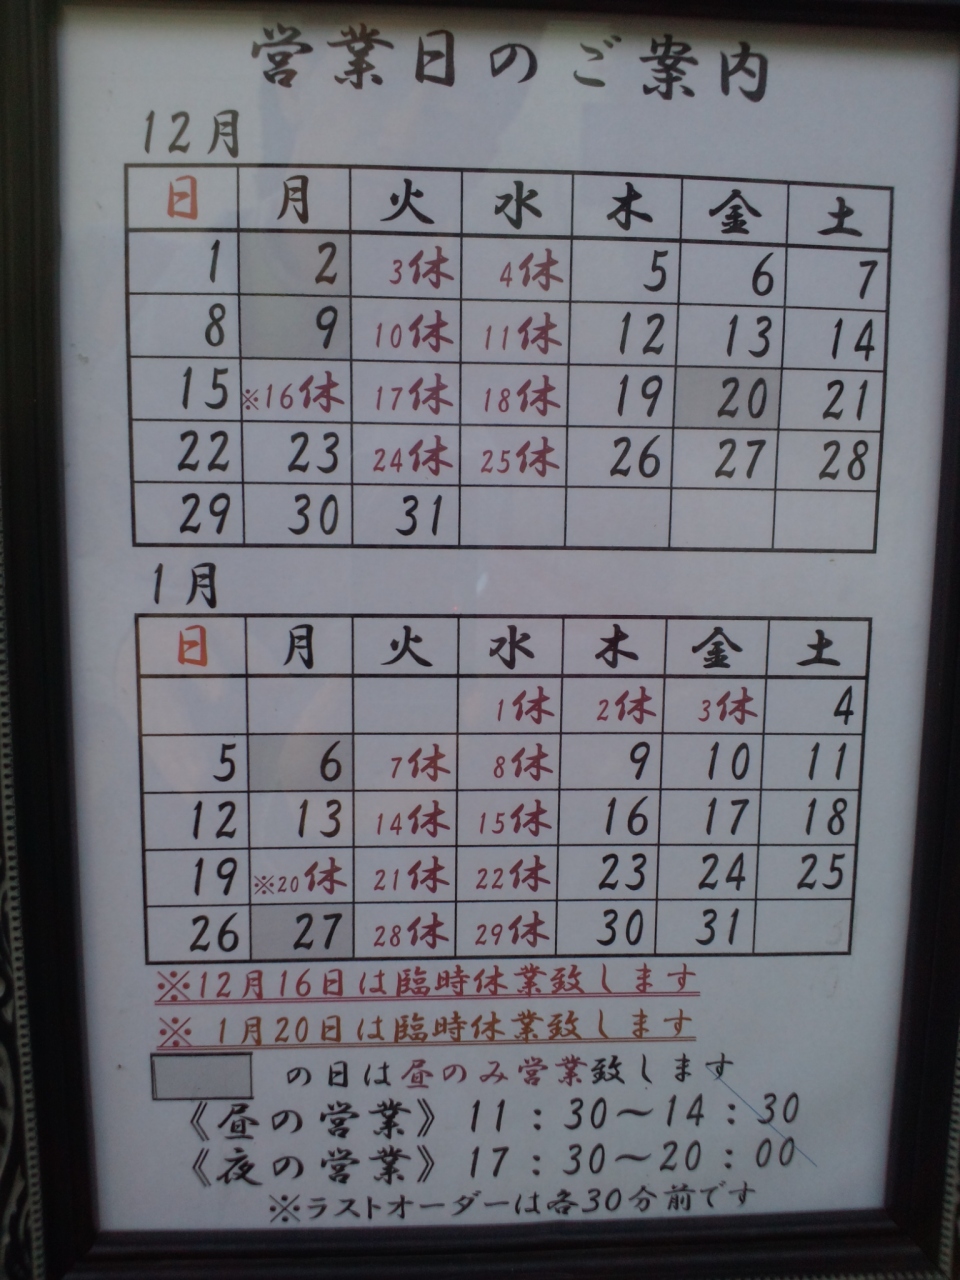 営業日のご案内
12月
日 月 火 水 木 金 土
1 2 3休 4休 5 6 7
8 9 10休 11休 12 13 14
15 ※16休 17休 18休 19 20 21
22 23 24休 25休 26 27 28
29 30 31
1月
日 月 火 水 木 金 土
1休 2休 3休 4
5 6 7休 8休 9 10 11
12 13 14休 15休 16 17 18
19 ※20休 21休 22休 23 24 25
26 27 28休 29休 30 31
※12月16日は臨時休業致します
※ 1月20日は臨時休業致します
の日は昼のみ営業致します
《昼の営業》 11:30~14:30
《夜の営業》 17:30~20:00
※ラストオーダーは各30分前です